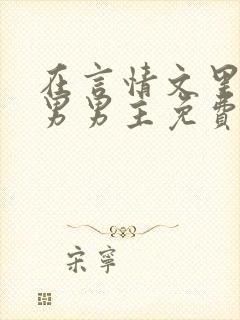 在言情文里
男男主免費
宋寧